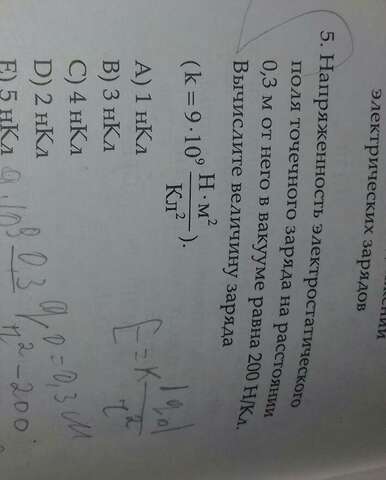 электрических зарядов
5. Напряженность электростатического
поля точечного заряда на расстоянии
0,3 м от него в вакууме равна 200 Н/Кл.
Вычислите величину заряда
(k = 9 · 10⁹ Н · м²/Кл²).
A) 1 нКл
B) 3 нКл
C) 4 нКл
D) 2 нКл
E) 5 нКл
E = k |q₀|/r²
= 0,3 м